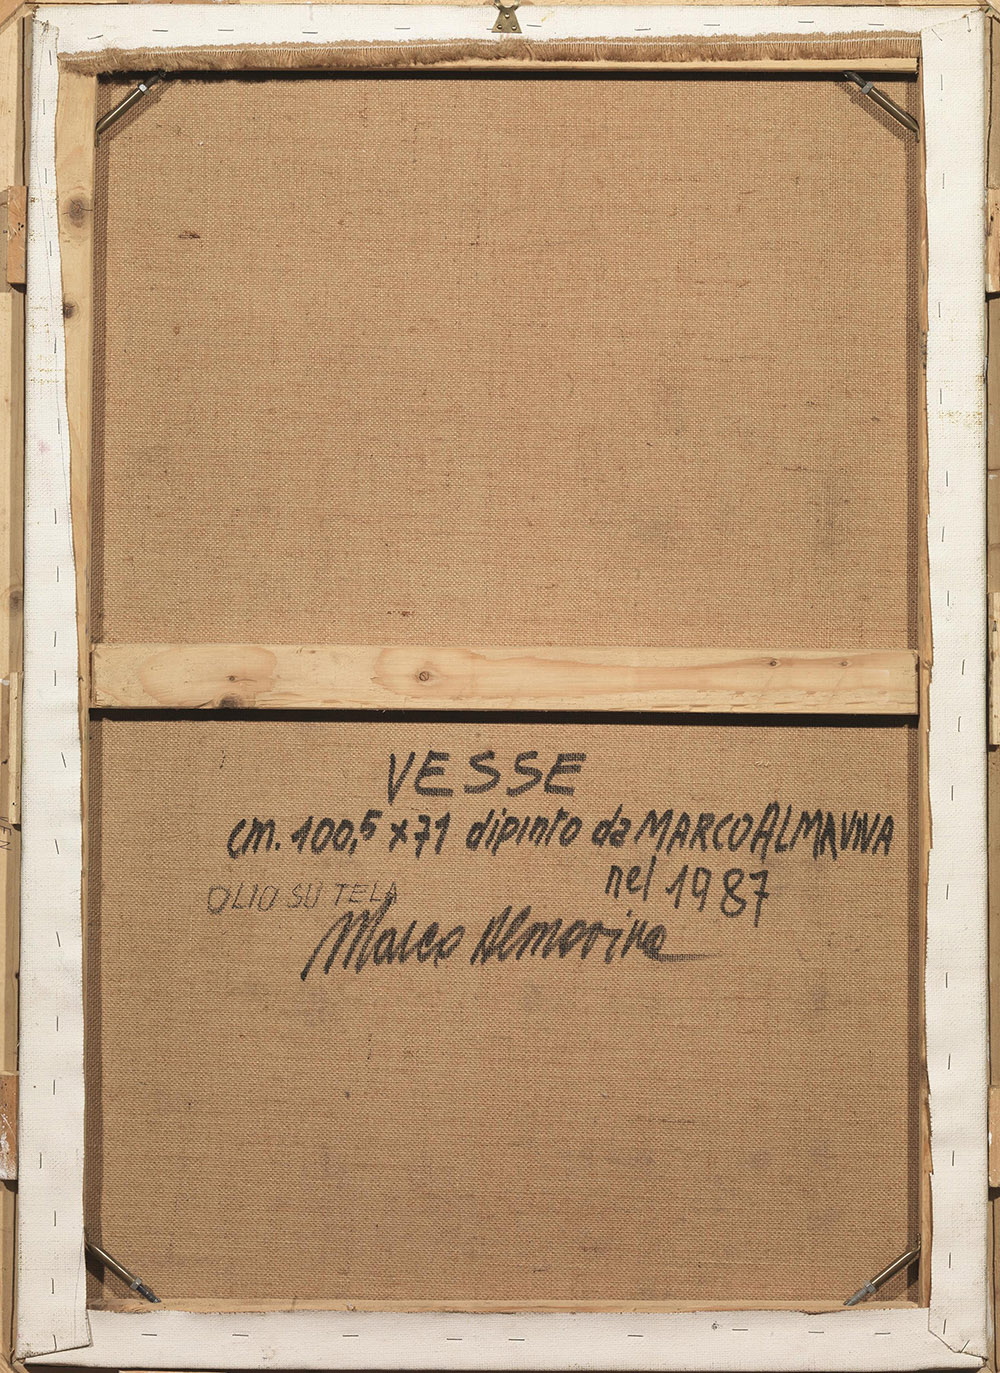 VESSE
cm. 100,5 x 71 dipinto da MARCO ALMAVIVA
nel 1987
OLIO SU TELA
Marco Almaviva